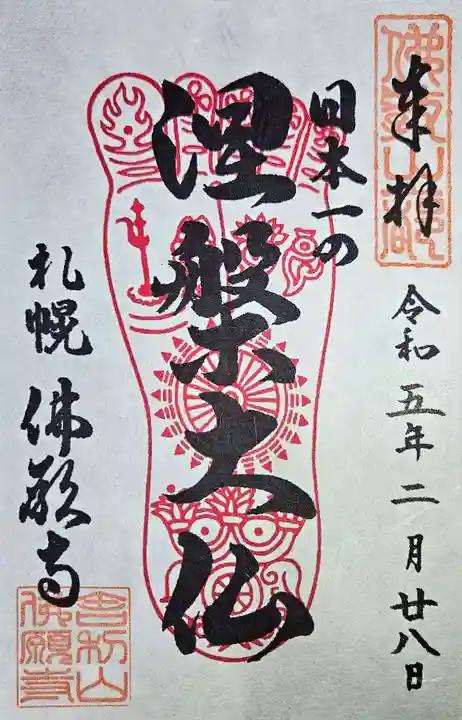 奉拝
令和五年二月廿八日
日本一の
涅槃大仏
札幌 佛願寺
舎利山
佛願寺